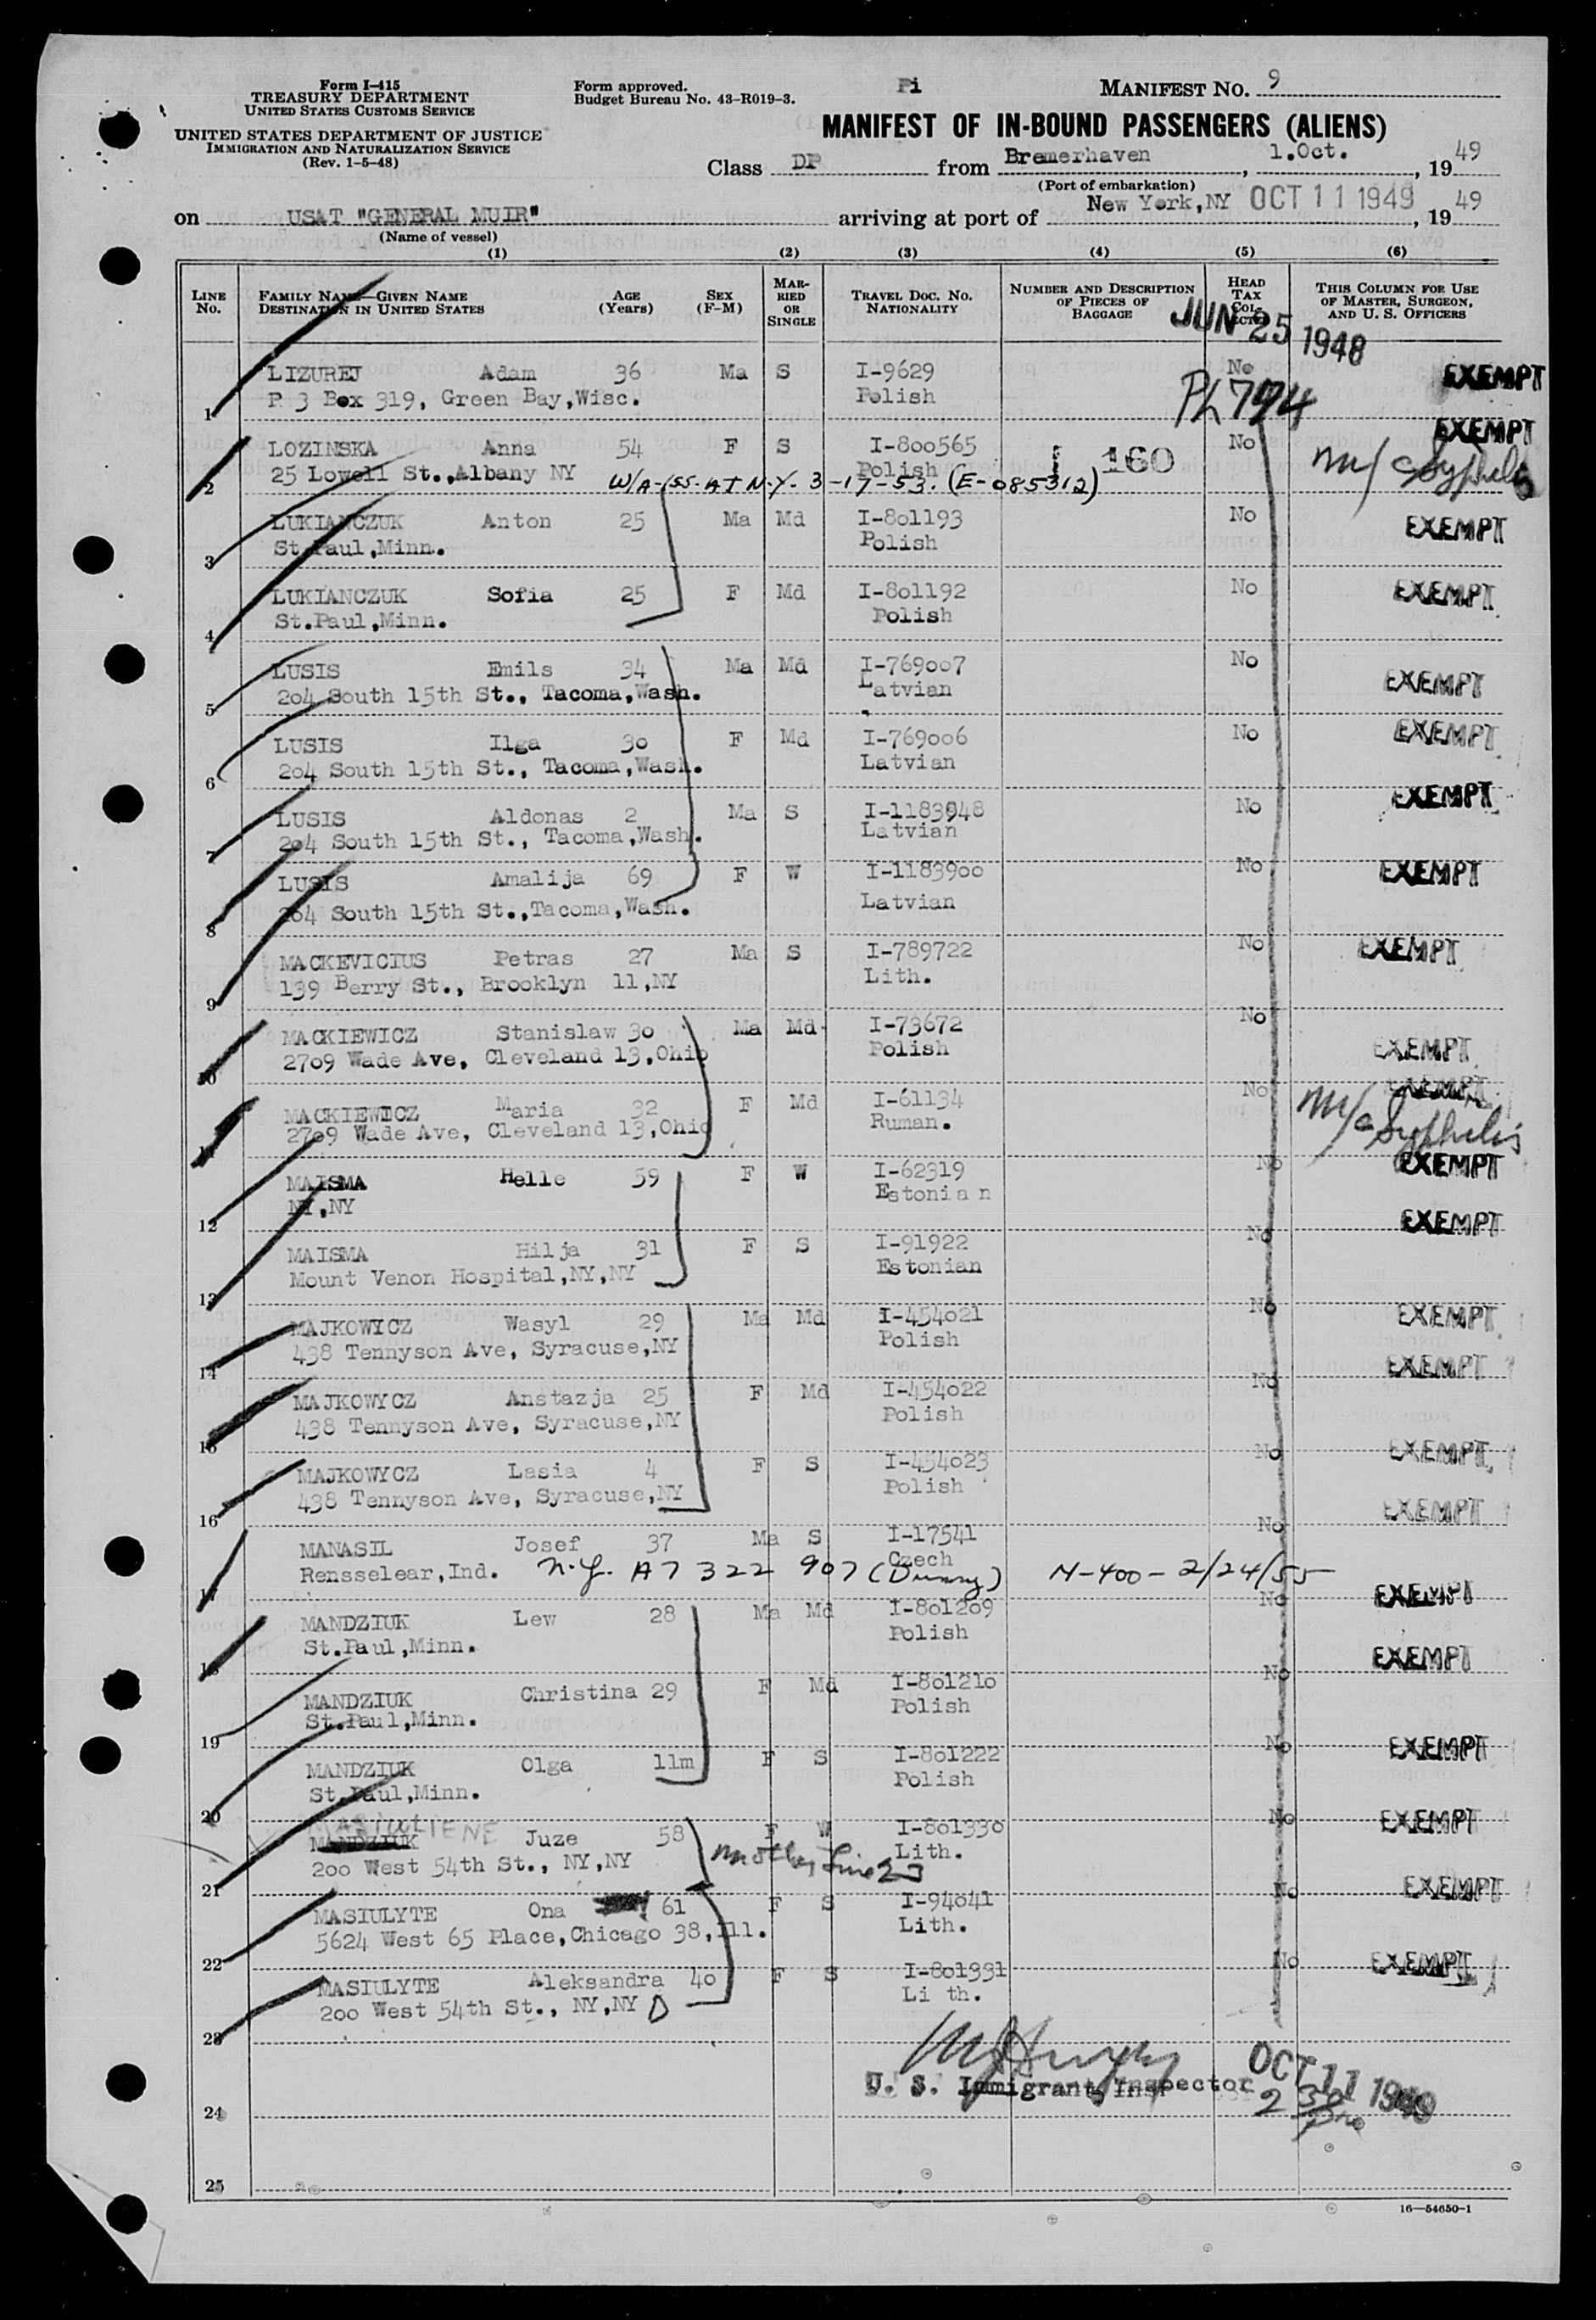 Form I-415
TREASURY DEPARTMENT
UNITED STATES CUSTOMS SERVICE
UNITED STATES DEPARTMENT OF JUSTICE
IMMIGRATION AND NATURALIZATION SERVICE
(Rev. 1-5-48)
Form approved.
Budget Bureau No. 43-R019-3.
Pi
MANIFEST No. 9
MANIFEST OF IN-BOUND PASSENGERS (ALIENS)
Class DP from Bremerhaven, 1.Oct., 1949
(Port of embarkation)
on USAT "GENERAL MUIR" arriving at port of New York,NY OCT 11 1949, 1949
(Name of vessel)
(1) (2) (3) (4) (5) (6)
LINE No. FAMILY NAME—GIVEN NAME DESTINATION IN UNITED STATES AGE (Years) SEX (F-M) MARRIED OR SINGLE TRAVEL DOC. NO. NATIONALITY NUMBER AND DESCRIPTION OF PIECES OF BAGGAGE HEAD TAX COLLECTED THIS COLUMN FOR USE OF MASTER, SURGEON, AND U. S. OFFICERS
JUN 25 1948
PL 774
1 LIZUREJ Adam 36 Ma S I-9629 No EXEMPT
R 3 Box 319, Green Bay,Wisc. Polish
2 LOZINSKA Anna 54 F S I-800565 No EXEMPT
25 Lowell St.,Albany NY Polish 160
W/A-ISS. AT N.Y. 3-17-53. (E-085312)
3 LUKIANCZUK Anton 25 Ma Md I-801193 No EXEMPT
St.Paul,Minn. Polish
4 LUKIANCZUK Sofia 25 F Md I-801192 No EXEMPT
St.Paul,Minn. Polish
5 LUSIS Emils 34 Ma Md I-769007 No EXEMPT
204 South 15th St., Tacoma,Wash. Latvian
6 LUSIS Ilga 30 F Md I-769006 No EXEMPT
204 South 15th St., Tacoma,Wash. Latvian
7 LUSIS Aldonas 2 Ma S I-1183948 No EXEMPT
204 South 15th St., Tacoma,Wash. Latvian
8 LUSIS Amalija 69 F W I-1183900 No EXEMPT
204 South 15th St.,Tacoma,Wash. Latvian
9 MACKEVICIUS Petras 27 Ma S I-789722 No EXEMPT
139 Berry St., Brooklyn 11,NY Lith.
10 MACKIEWICZ Stanislaw 30 Ma Md I-73672 No EXEMPT
2709 Wade Ave, Cleveland 13,Ohio Polish
11 MACKIEWICZ Maria 32 F Md I-61134 No EXEMPT
2709 Wade Ave, Cleveland 13,Ohio Ruman.
12 MAISMA Helle 59 F W I-62319 No EXEMPT
NY,NY Estonian
13 MAISMA Hilja 31 F S I-91922 No EXEMPT
Mount Venon Hospital,NY,NY Estonian
14 MAJKOWYCZ Wasyl 29 Ma Md I-454021 No EXEMPT
438 Tennyson Ave, Syracuse,NY Polish
15 MAJKOWYCZ Anstazja 25 F Md I-454022 No EXEMPT
438 Tennyson Ave, Syracuse,NY Polish
16 MAJKOWYCZ Lasia 4 F S I-454023 No EXEMPT
438 Tennyson Ave, Syracuse,NY Polish
17 MANASIL Josef 37 Ma S I-17541 No EXEMPT
Rensselear,Ind. Czech
N.Y. A7 322 907 N-400-2/24/55
18 MANDZIUK Lew 28 Ma Md I-801209 No EXEMPT
St.Paul,Minn. Polish
19 MANDZIUK Christina 29 F Md I-801210 No EXEMPT
St.Paul,Minn. Polish
20 MANDZIUK Olga 11m F S I-801222 No EXEMPT
St.Paul,Minn. Polish
MASIULIENE
21 MANDZIUK Juze 58 F W I-801330 No EXEMPT
200 West 54th St., NY,NY Mother Line 23 Lith.
22 MASIULYTE Ona 61 F S I-94041 No EXEMPT
5624 West 65 Place,Chicago 38,Ill. Lith.
23 MASIULYTE Aleksandra 40 F S I-801331 No EXEMPT
200 West 54th St., NY,NY Lith.
U. S. Immigrant Inspector OCT 11 1949
24
25
16—54650-1